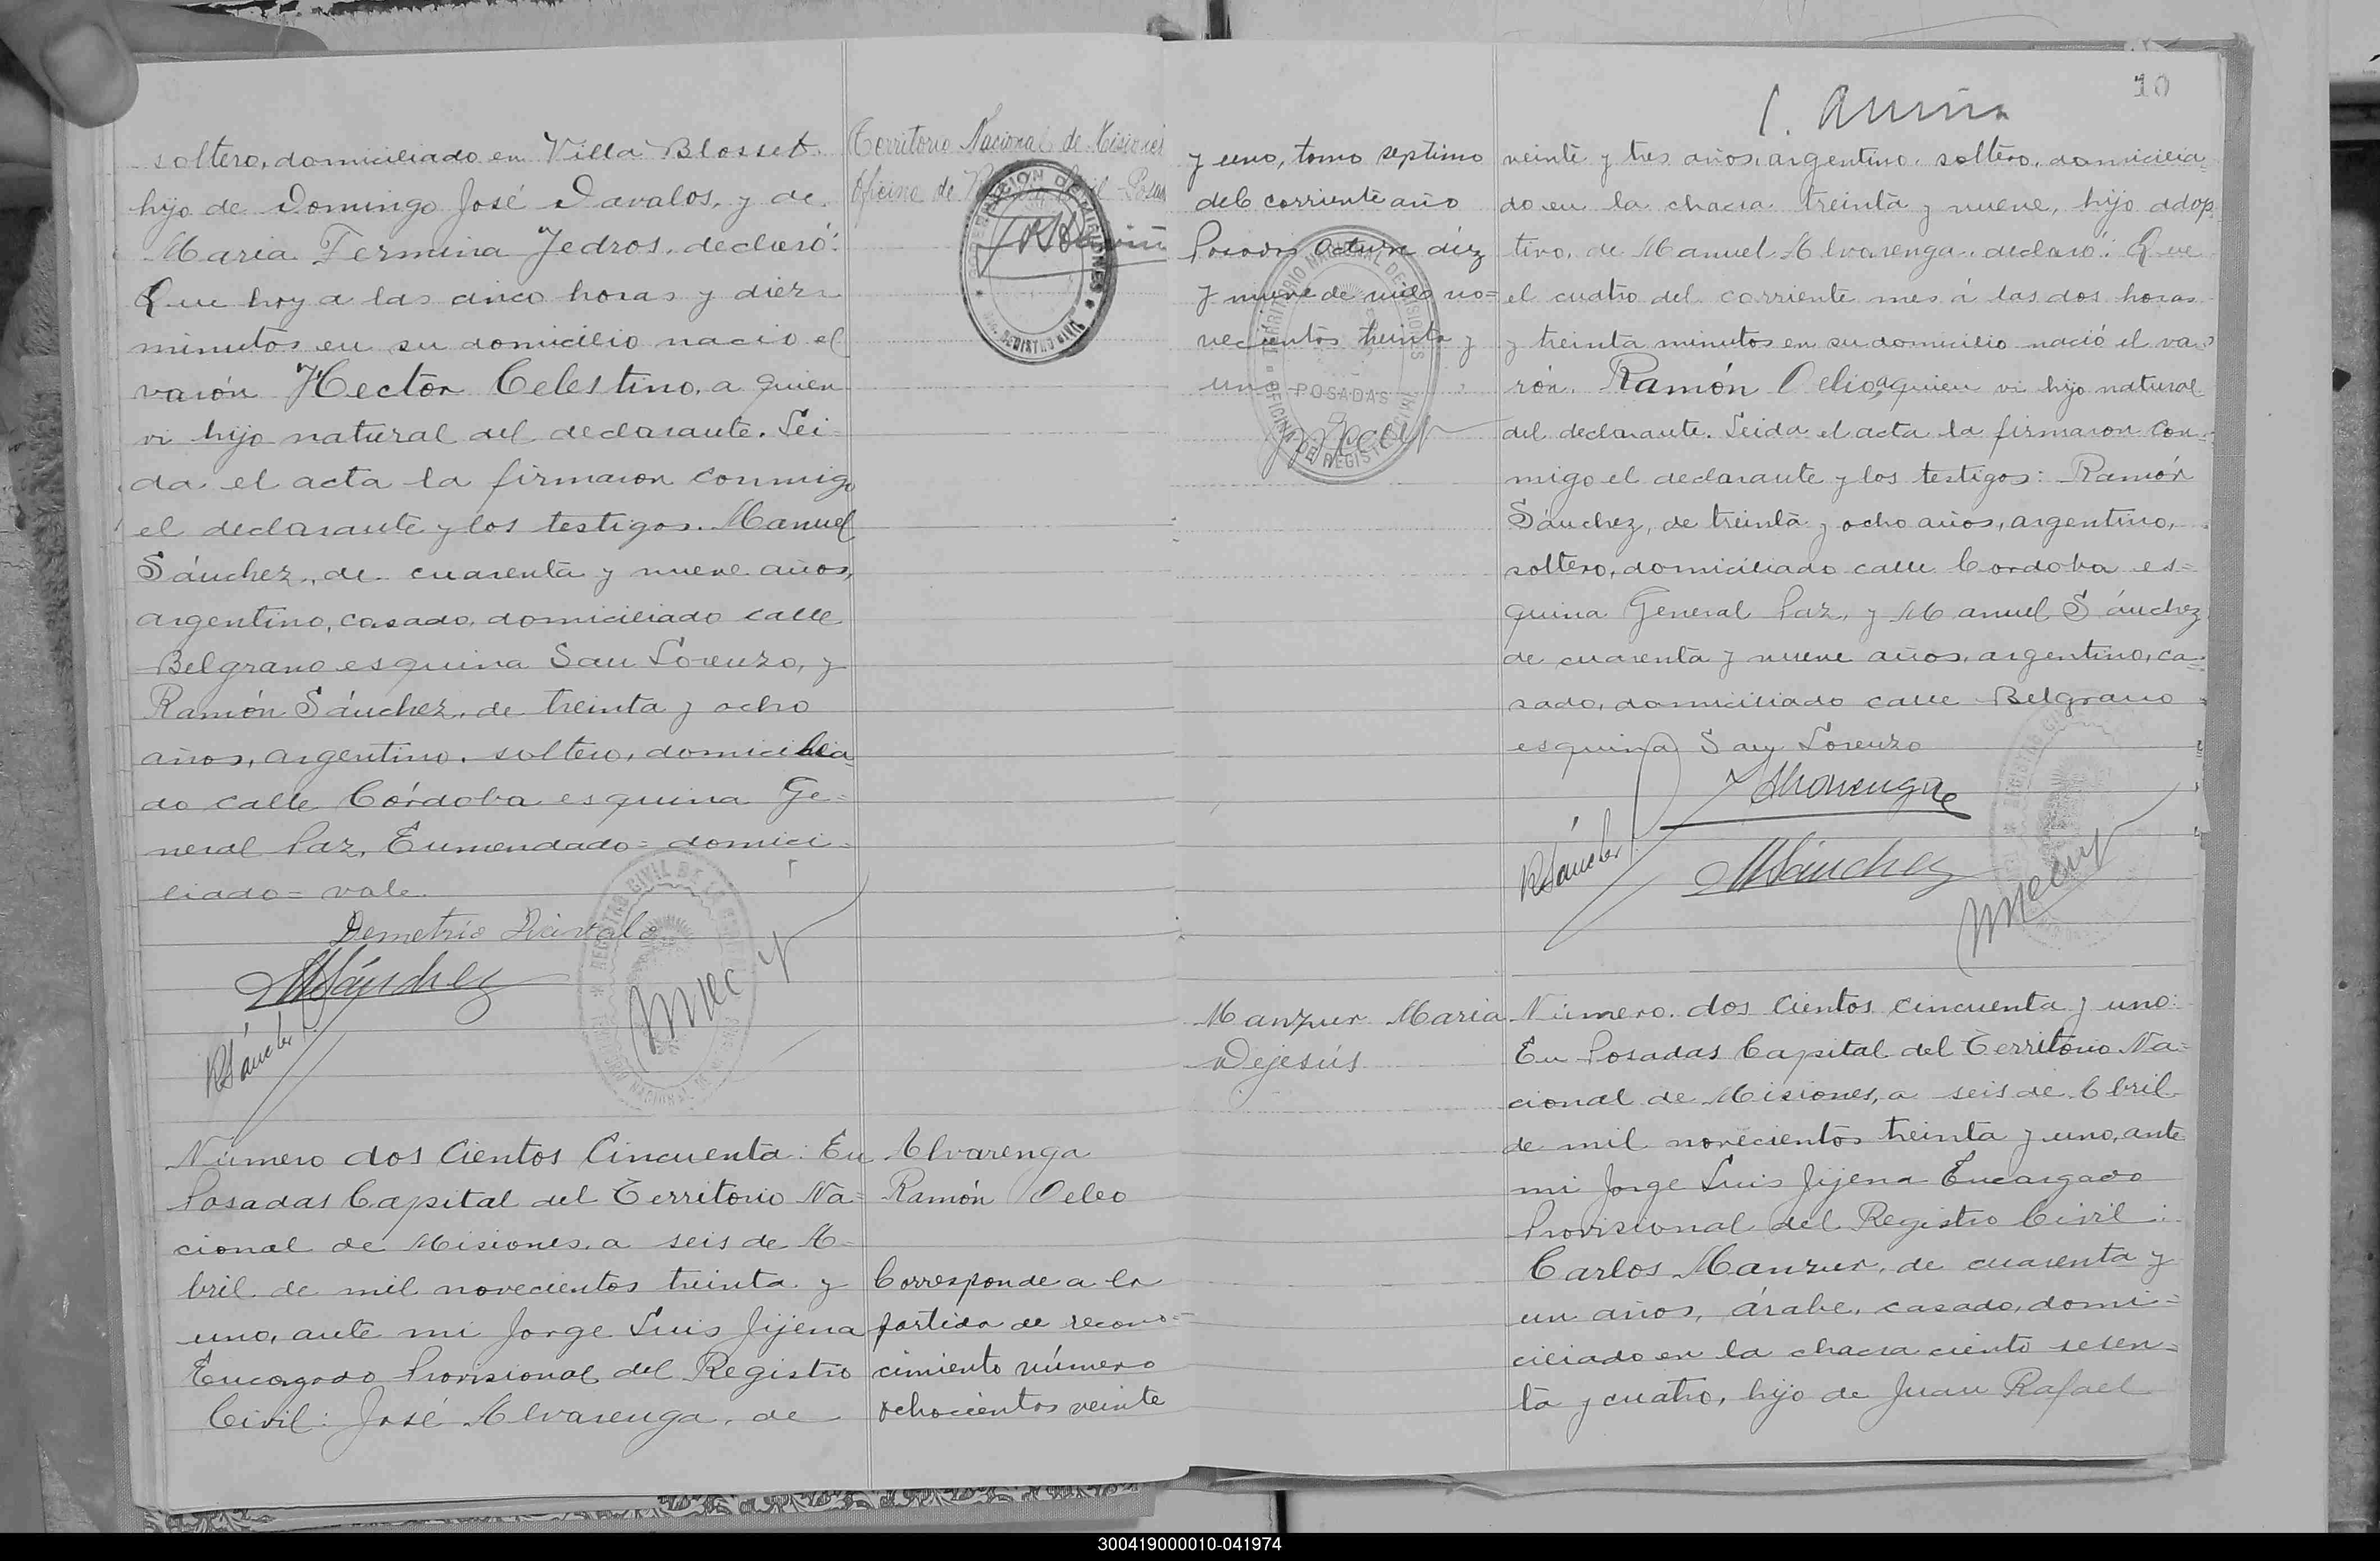 soltero, domiciliado en Villa Blosset.
hijo de Domingo José Davalos, y de
Maria Fermina Jedros, declaró:
Que hoy a las cinco horas y diez
minutos en su domicilio nació el
varón Hector Celestino, a quien
vi hijo natural del declarante. Lei-
da el acta la firmaron conmigo
el declarante y los testigos. Manuel
Sánchez, de cuarenta y nueve años,
argentino, casado, domiciliado calle
Belgrano esquina San Lorenzo, y
Ramón Sánchez, de treinta y ocho
años, argentino, soltero, domicilia-
do calle Córdoba esquina Ge-
neral Paz, Enmendado = domici-
liado = vale.
Demetrio
MSánchez
RSánchez
Número dos Cientos Cincuenta: En
Posadas Capital del Territorio Na-
cional de Misiones, a seis de A-
bril de mil novecientos treinta y
uno, ante mi Jorge Luis Jijena
Encargado Provisional del Registro
Civil: José Alvarenga, de
Territorio Nacional de Misiones
Oficina de Registro Civil - Posadas
GOBERNACION DE MISIONES
REGISTRO CIVIL
Alvarenga
Ramón Oelio
Corresponde a la
partida de recono=
cimiento número
ochocientos veinte
y uno, tomo septimo
del corriente año
Posadas Octubre diez
y nueve de mil no=
vecientos treinta y
uno
TERRITORIO NACIONAL DE MISIONES
POSADAS
OFICINA DE REGISTRO CIVIL
10
veinte y tres años, argentino, soltero, domicilia-
do en la chacra treinta y nueve, hijo adop-
tivo, de Manuel Alvarenga, declaró: Que
el cuatro del corriente mes á las dos horas
y treinta minutos en su domicilio nació el va-
rón, Ramón Oelio, a quien vi hijo natural
del declarante. Leida el acta la firmaron con-
migo el declarante y los testigos: Ramón
Sánchez, de treinta y ocho años, argentino,
soltero, domiciliado calle Cordoba es-
quina General Paz, y Manuel Sánchez
de cuarenta y nueve años, argentino, ca-
sado, domiciliado calle Belgrano
esquina San Lorenzo
JAlvarenga
RSánchez
MSánchez
Manzur Maria
Dejesús
Número dos Cientos Cincuenta y uno:
En Posadas Capital del Territorio Na-
cional de Misiones, a seis de Abril
de mil novecientos treinta y uno, ante
mi Jorge Luis Jijena Encargado
Provisional del Registro Civil:
Carlos Manzur, de cuarenta y
un años, árabe, casado, domi-
ciliado en la chacra ciento sesen-
ta y cuatro, hijo de Juan Rafael
300419000010-041974